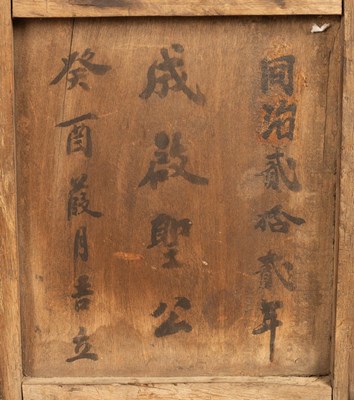 同治貳拾貳年
成啟聖公
癸酉葭月吉立